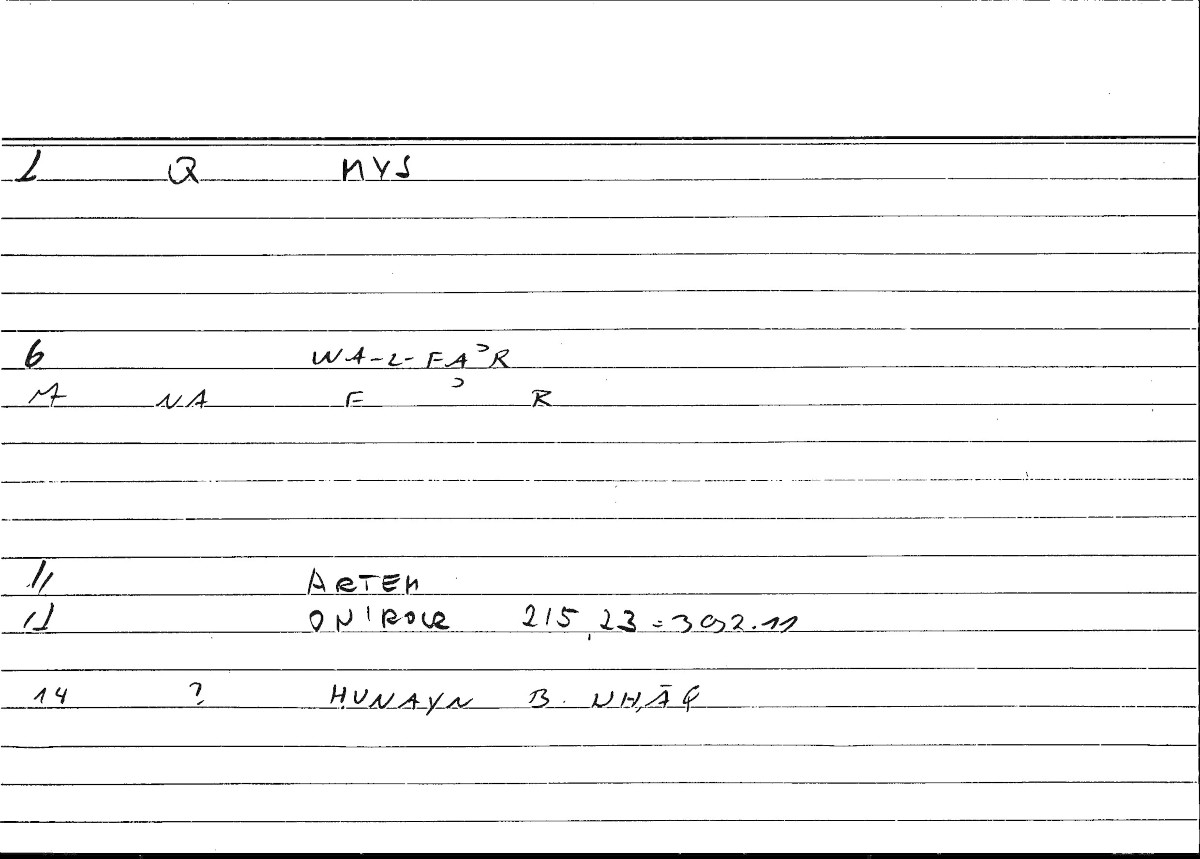 1 Q MYS
6 WA-L-FAʾR
NA F ʾ R
11 ARTEM
12 ONIROCR 215,23=392.11
14 ? ḤUNAYN B. ISḤĀQ